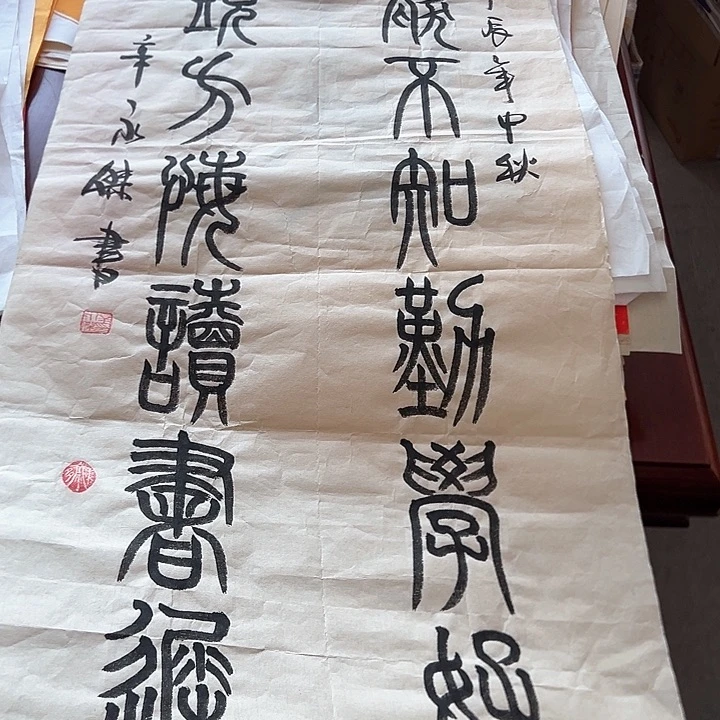 辰年中秋
不知勤學
方悔讀書遲
辛永傑書